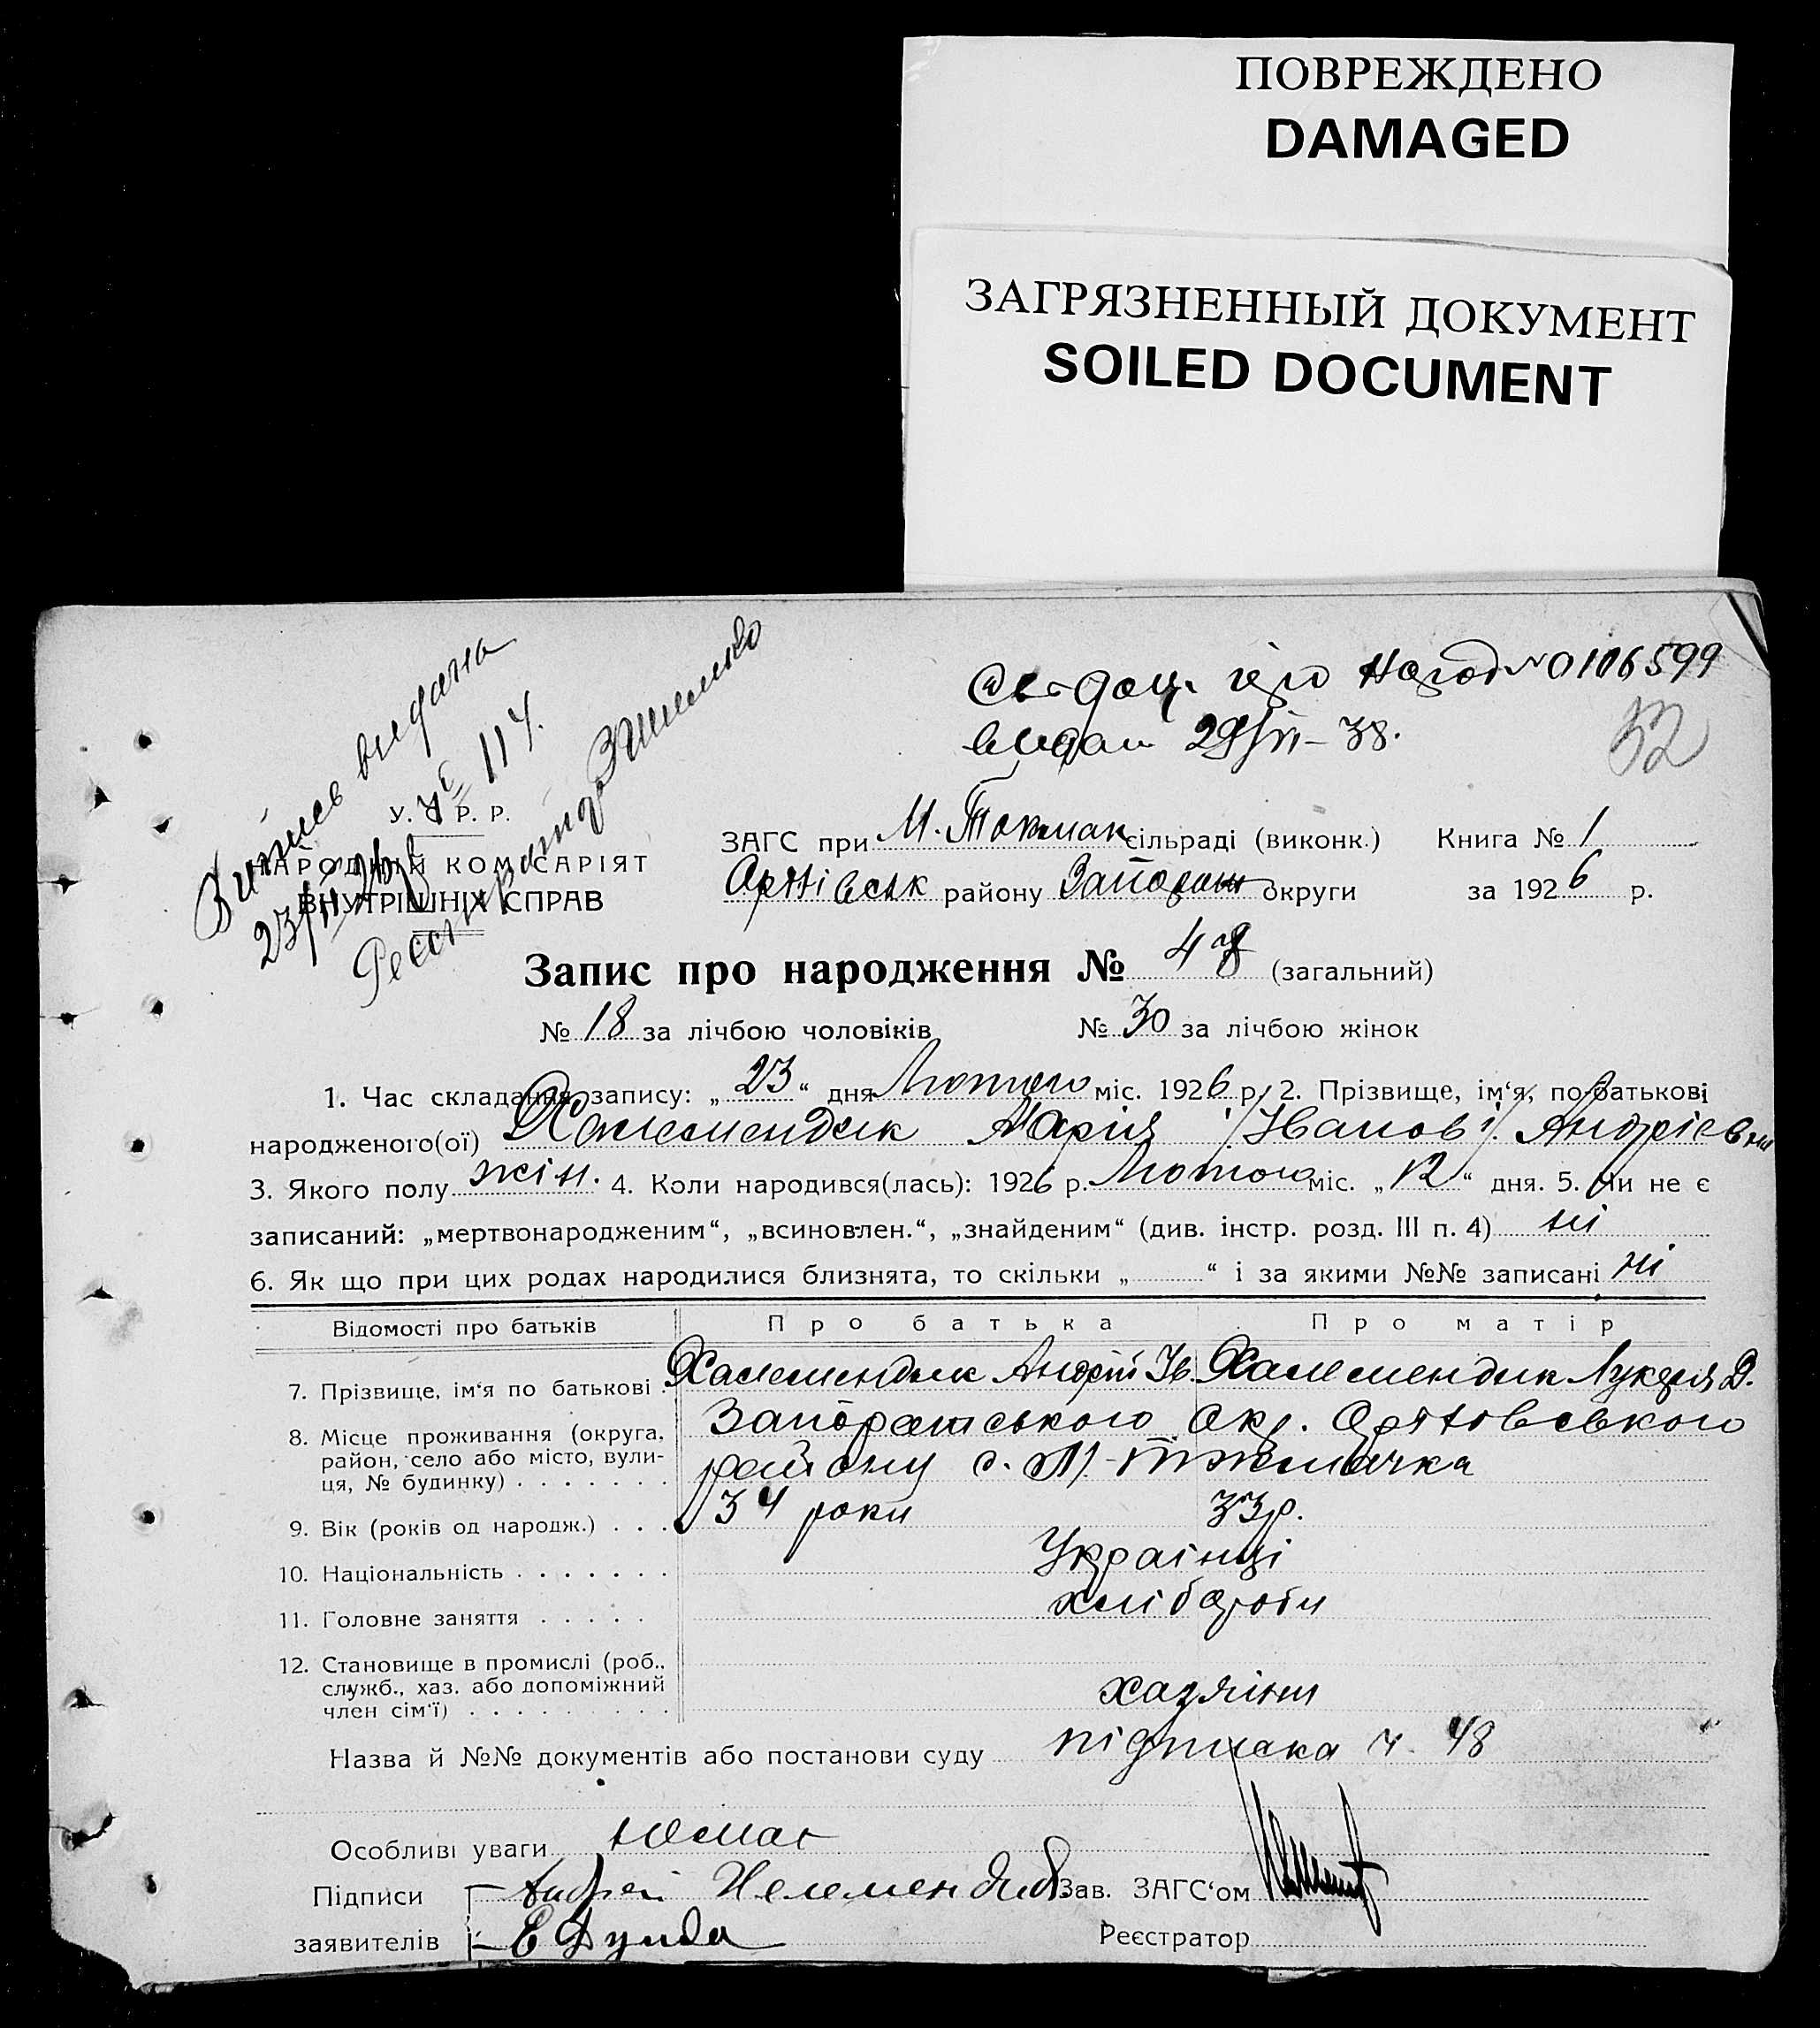 ПОВРЕЖДЕНО
DAMAGED
ЗАГРЯЗНЕННЫЙ ДОКУМЕНТ
SOILED DOCUMENT
про Народ № 0106599
видан 29/VI – 38.
52
Витяг видана
23/II
№ 114.
Реєстратор
У. С. Р. Р.
НАРОДНІЙ КОМІСАРІЯТ
ВНУТРІШНІХ СПРАВ
ЗАГС при М. Токмак сільраді (виконк.) Книга № 1
району Запорож округи за 1926 р.
Запис про народження № 48 (загальний)
№ 18 за лічбою чоловіків № 30 за лічбою жінок
1. Час складання запису: „23“ дня Лютого міс. 1926 р. 2. Прізвище, ім‘я, по-батькові
народженого(ої) Халемендик Марія /Іванові/ Андрієвна
3. Якого полу жін. 4. Коли народився(лась): 1926 р. Лютого міс. „12“ дня. 5. Чи не є
записаний: „мертвонародженим“, „всиновлен.“, „знайденим“ (див. інстр. розд. III п. 4) ні
6. Як що при цих родах народилися близнята, то скільки „ “ і за якими №№ записані ні
Відомості про батьків Про батька Про матір
7. Прізвище, ім‘я по батькові . Халемендик Андрій Ів. Халемендик Лукерія Д.
8. Місце проживання (округа, район, село або місто, вулиця, № будинку) . . . . . . . Запорожського окр.
району с. М-Токмачка
9. Вік (років од народж.) . . . 34 роки 33 р.
10. Національність . . . . . . . Українці
11. Головне заняття . . . . . хлібороби
12. Становище в промислі (роб., служб., хаз. або допоміжний член сім‘ї) . . . . . . . . . хазяїни
Назва й №№ документів або постанови суду підписка ч. 48
Особливі уваги немає
Підписи Андрей Хелемендик Зав. ЗАГС‘ом
заявителів Е Дунда Реєстратор